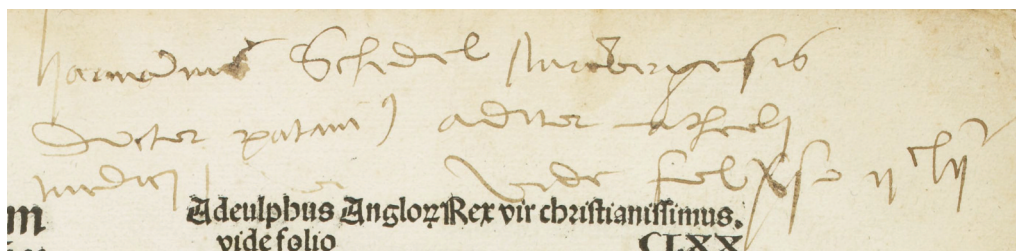 harmanus Schedel Nurēbergensis
Doctor patauī9 aditor
medici Vide
Adeulphus Angloꝝ Rex vir christianissimus.
vide folio CLXX